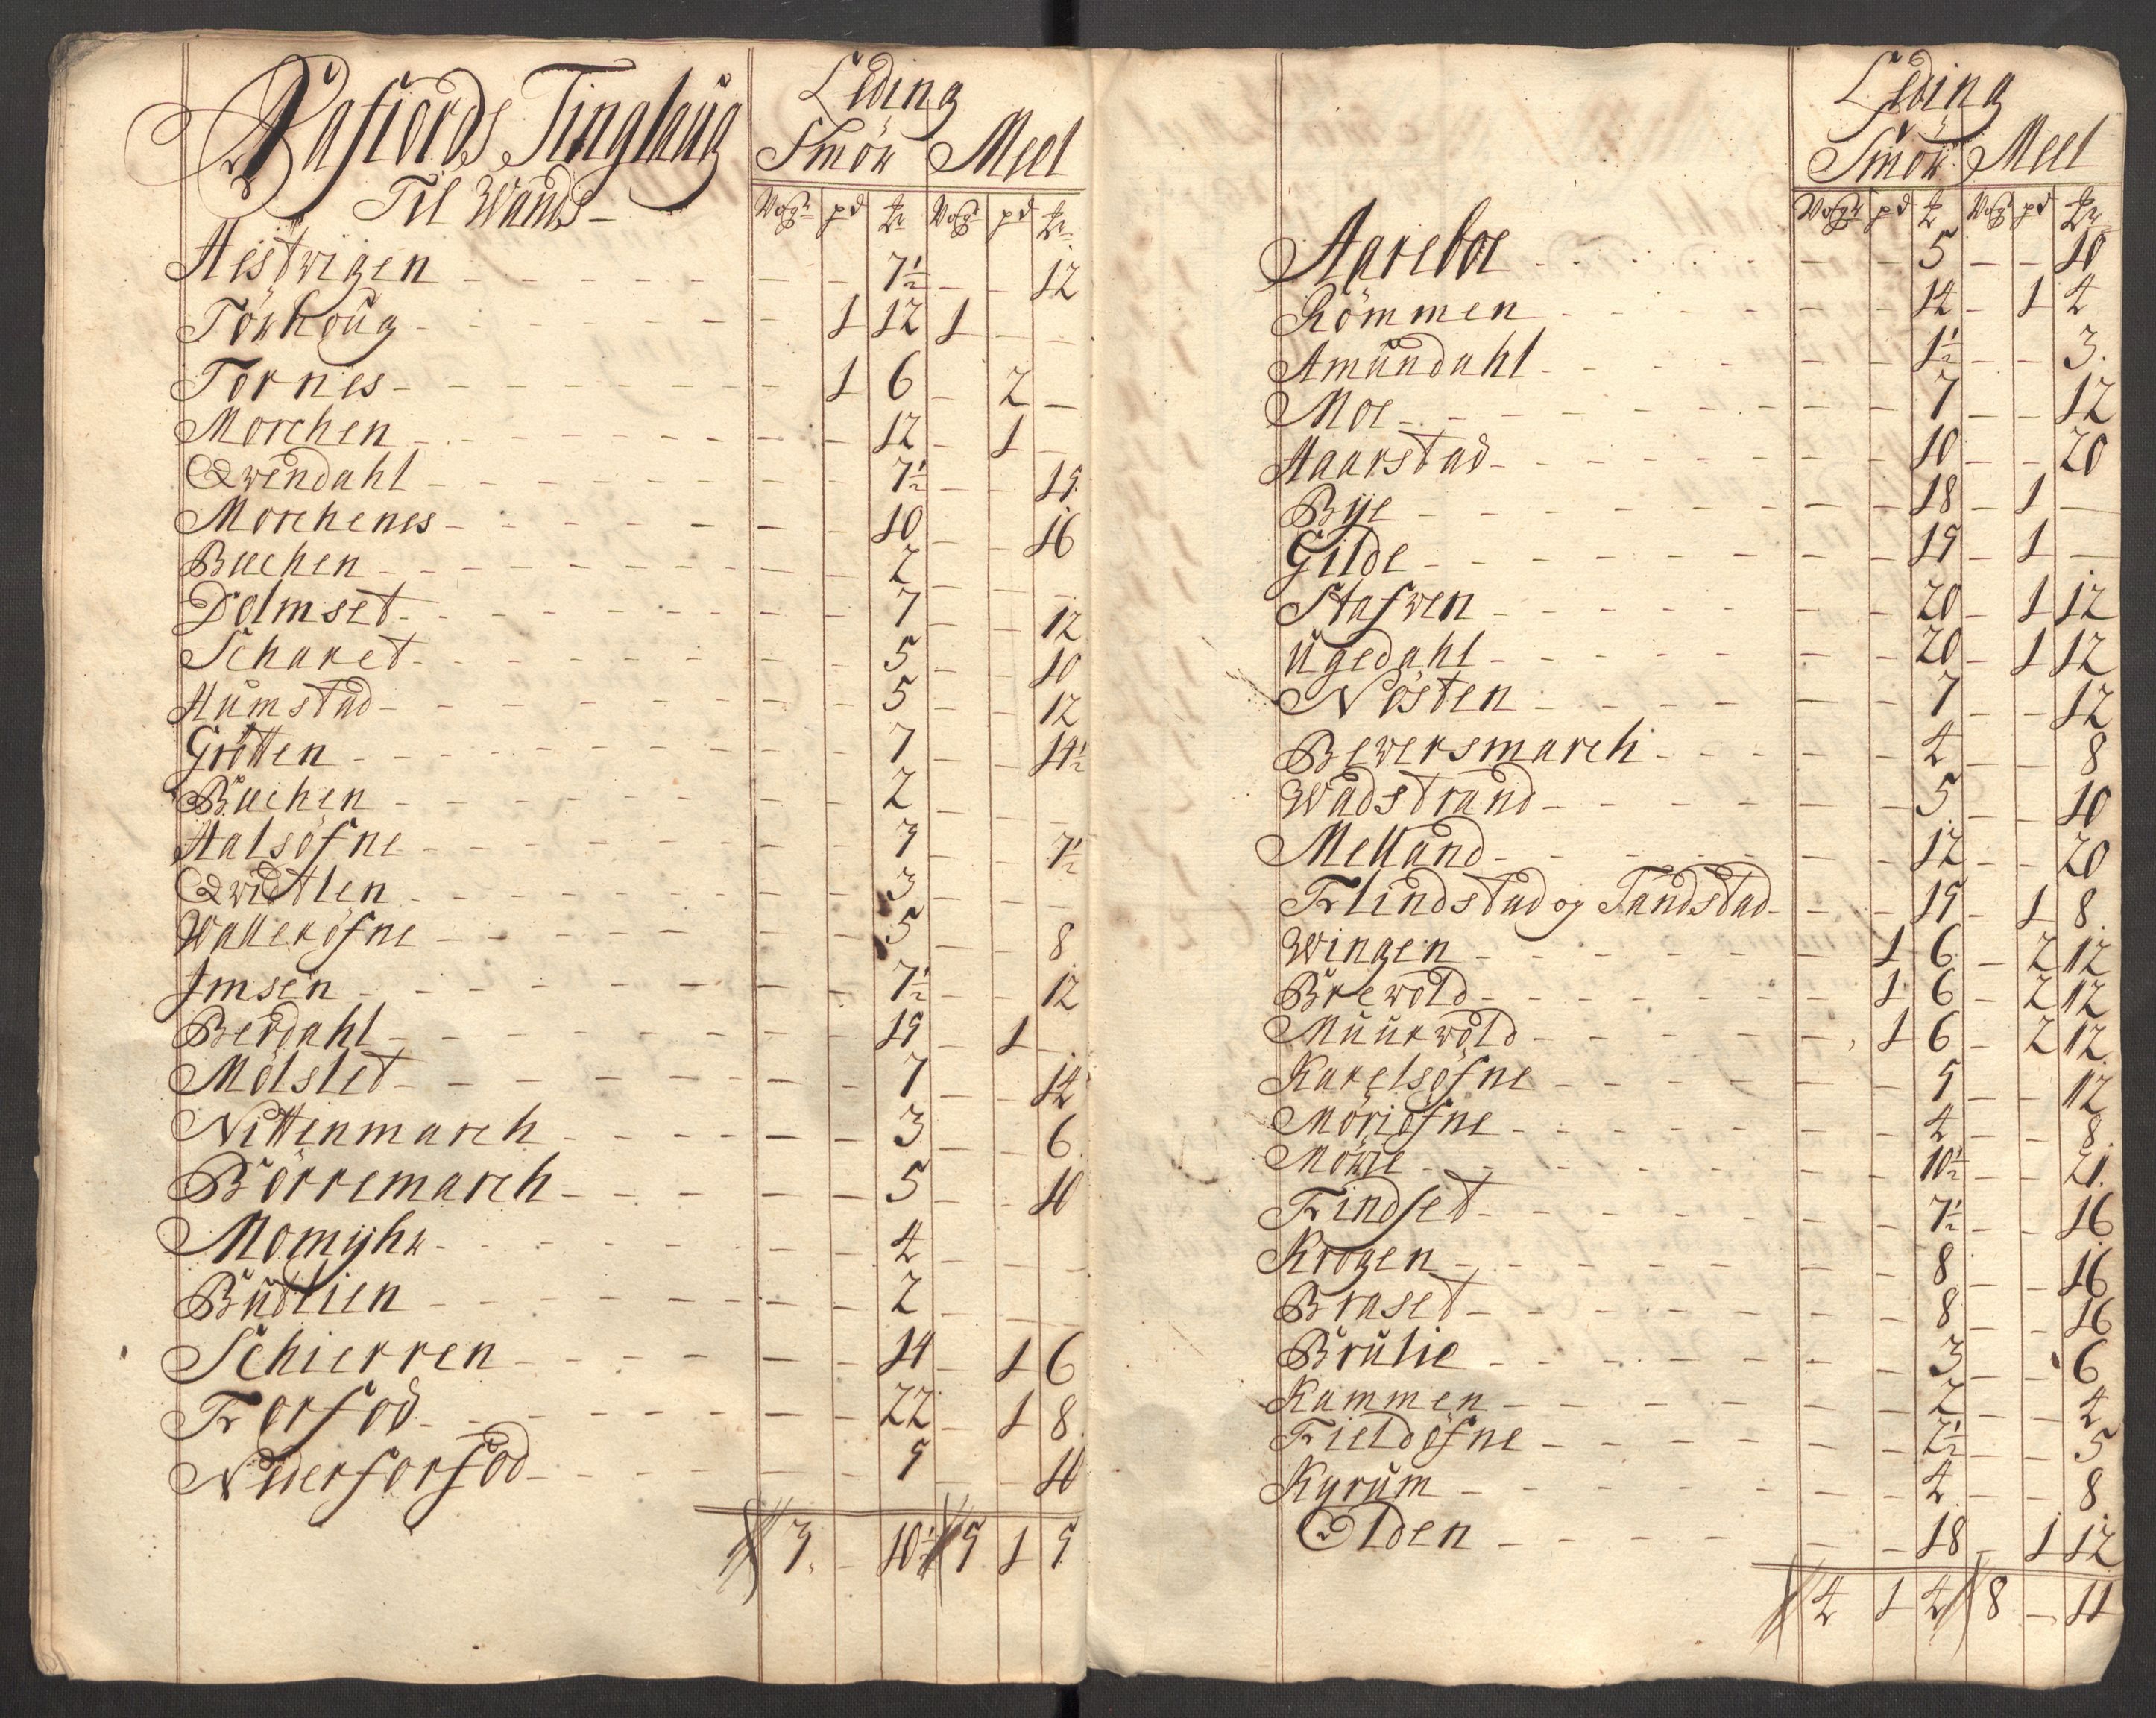 Aafiords Tinglaug
Til Wands
Leding
Smör Meel
Wog pd Wog pd
Hestwigen - - 7½ - - 12
Törhoug - 1 12 1 - -
Tornes - 1 6 - 2 -
Morchen - - 12 - 1 -
Qwendahl - - 7½ - - 15
Morchenes - - 10 - - 16
Buchen - - 2 - - -
Dolmset - - 7 - - 12
Scharet - - 5 - - 10
Humstad - - 5 - - 12
Grötten - - 7 - - 14½
Buchen - - 2 - - -
Halsöfne - - 3 - - 7½
Qwidtlen - - 3 - - -
Walleröfne - - 5 - - 8
Imsen - - 7½ - - 12
Berdahl - - 15 - 1 -
Mölslet - - 7 - - 14
Nittenmarch - - 3 - - 6
Börremarch - - 5 - - 10
Momyhr - - 4 - - -
Budtlien - - 2 - - -
Schierren - - 14 - 1 6
Forfod - - 22 - 1 8
Nederforfod - - 5 - - 10
3 - 10½ 5 1 5
Leding
Smör Meel
Wog pd Wog pd
Hareboe - - 5 - - 10
Römmen - - 14 - 1 4
Amundahl - - 1½ - - 3
Moe - - 7 - - 12
Haarstad - - 10 - - 20
Bye - - 18 - 1 -
Gilde - - 15 - 1 -
Stafwen - - 20 - 1 12
Ugedahl - - 20 - 1 12
Nösten - - 7 - - 12
Bewersmarch - - 4 - - 8
Wadstrand - - 5 - - 10
Melland - - 12 - - 20
Flindstad og Tandstad - - 15 - 1 8
Wingen - 1 6 - 2 12
Brewold - 1 6 - 2 12
Muurwold - 1 6 - 2 12
Karelsöfne - - 5 - - 12
Möriöfne - - 4 - - 8
Mörre - - 10½ - - 21
Findset - - 7½ - - 16
Krogen - - 8 - - 16
Braset - - 8 - - 16
Brulie - - 3 - - 6
Kammen - - 2 - - 4
Fieldöfne - - 2½ - - 5
Kyrum - - 4 - - 8
Olden - - 18 - 1 12
4 1 4 8 - 11